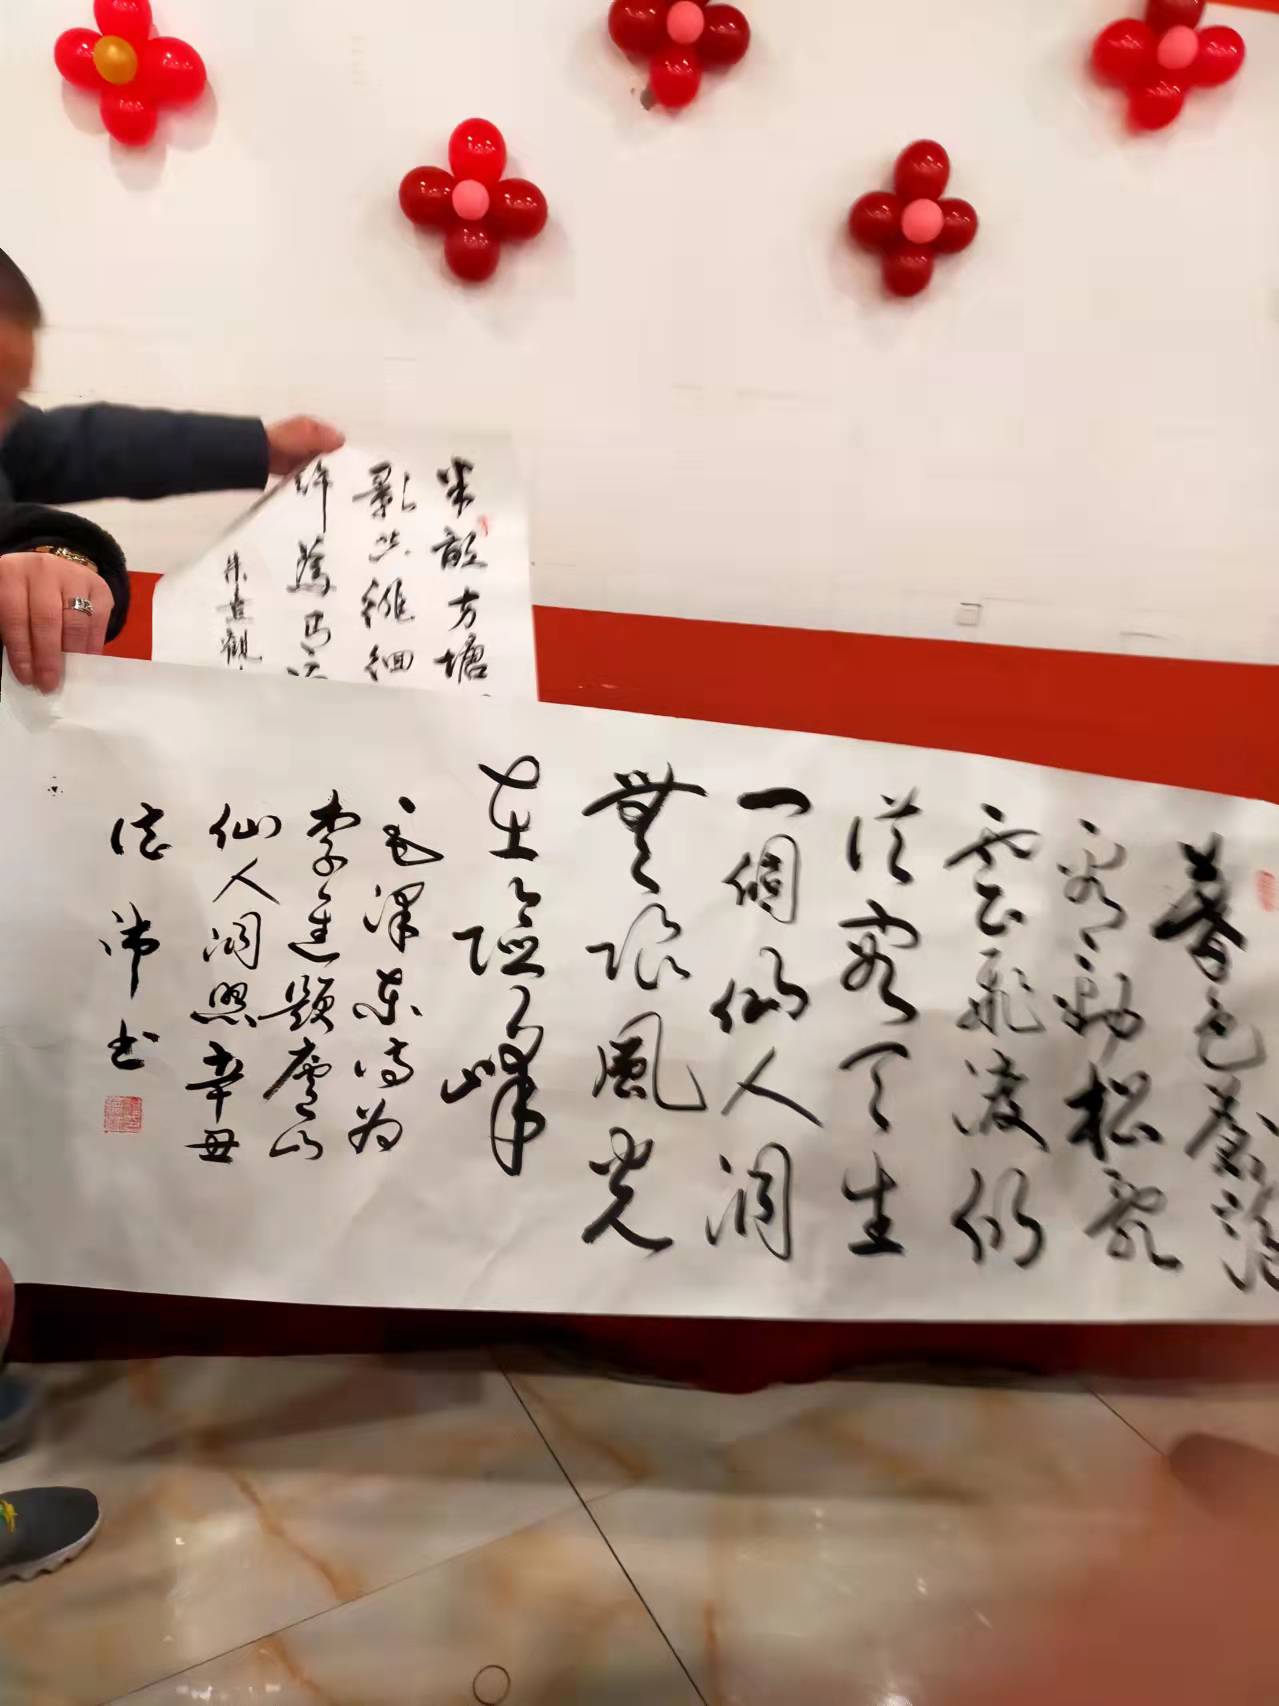 半畝方塘
影共徘徊
許為有
朱熹觀
暮色蒼茫
看勁松亂
雲飛渡仍
從容天生
一個仙人洞
無限風光
在險峰
毛澤東詩為
李進題廬山
仙人洞照辛丑
书